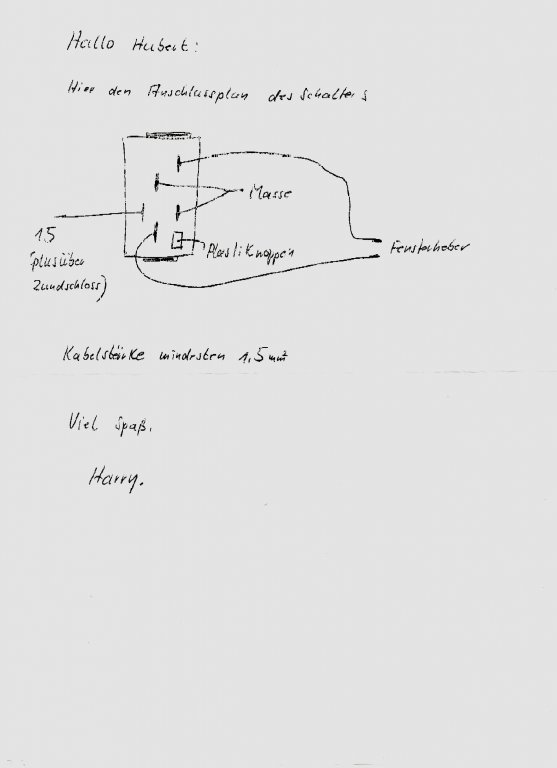 Hallo Hubert:
Hier den Anschlussplan des Schalters
Masse
15
(plus über
Zündschloss)
Plastiknoppen
Fensterheber
Kabelstärke mindesten 1,5 mm²
Viel Spaß.
Harry.